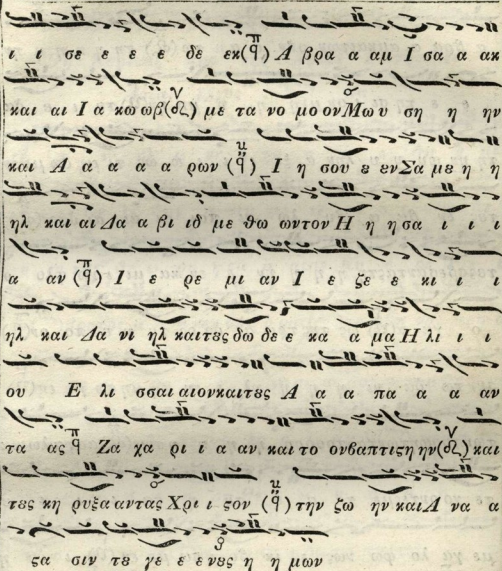 ι ι σε ε ε ε δε εκ (π̈ q) Α βρα α αμ Ι σα α ακ
και αι Ι α κω ωβ (ν ϡ) με τα νο μο ον Μω υ ση η ην
και Α α α α α ρων (q̈) Ι η σου ȣ εν Σα μȣ η η
ηλ και αι Δα α βι ιδ με θω ωντον Η η ησα ι ι ι
α αν (π̈ q) Ι ε ρε μι αν Ι ε ζε ε κι ι ι
ηλ και Δα νι ηλ καιτȣς δω δε ε κα α μα Η λι ι ι
ου Ε λι σσαι αιονκαιτȣς Α α α πα α α αν
τα ας π̈ q Ζα χα ρι ι α αν και το ονβαπτιϛη ην (ν ϡ) και
τȣς κη ρυξα αντας Χρι ι ϛον (q̈) την ζω ην και Α να α
ϛα σιν τȣ γε ε ενȣς η η μων